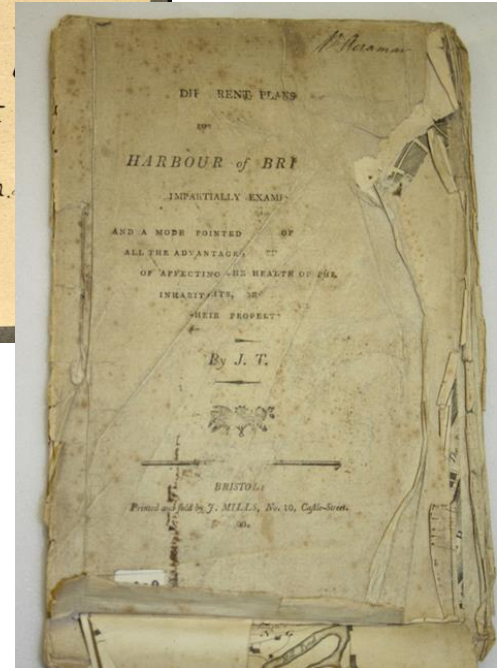 n.
DIF RENT PLANS
HARBOUR of BRI
IMPARTIALLY EXAMI
AND A MODE POINTED OF
ALL THE ADVANTAGE
OF AFFECTING HE HEALTH OF THE
INHABIT ITS,
HEIR PROPERT
By J. T.
BRISTOL:
Printed and sold by J. MILLS, No. 10, Castle-Street.